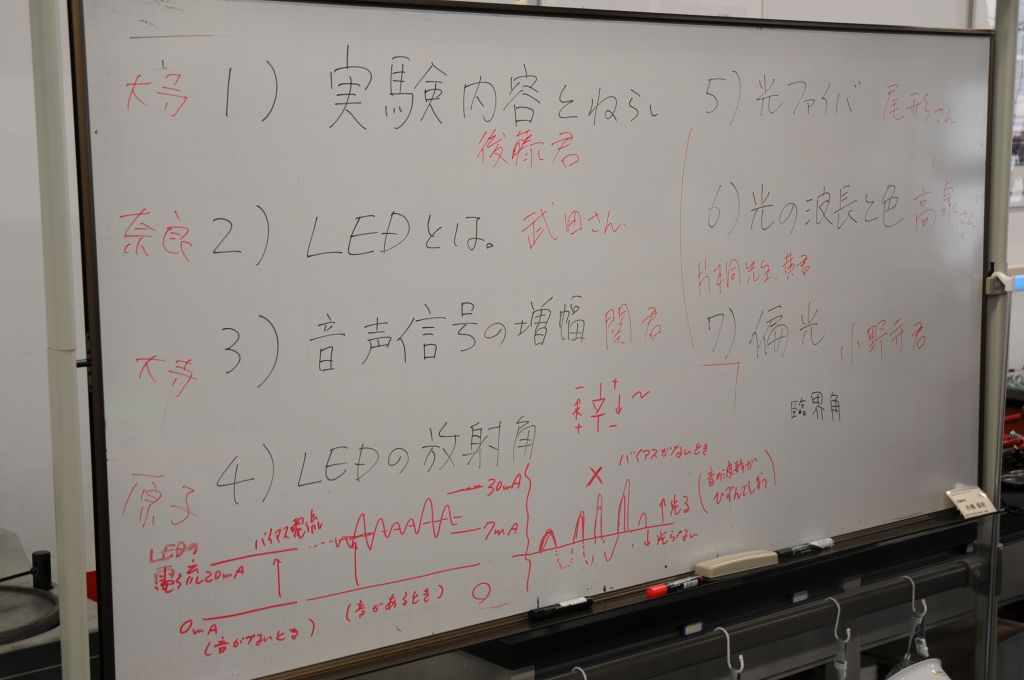 1) 実験内容とねらい
後藤君
奈良 2) LEDとは。 武田さん
3) 音声信号の増幅 関君
4) LEDの放射角
原子
5) 光ファイバ 尾形さん
6) 光の波長と色 高泉さん
片桐先生、黄君
7) 偏光 小野寺君
臨界角
− +
+ −
LEDの
電流20mA
バイアス電流
30mA
7mA
0mA
(音がないとき)
(音があるとき)
0
×
バイアスがないとき
光る
光らない
(音の波形が
ひずんでしまう)